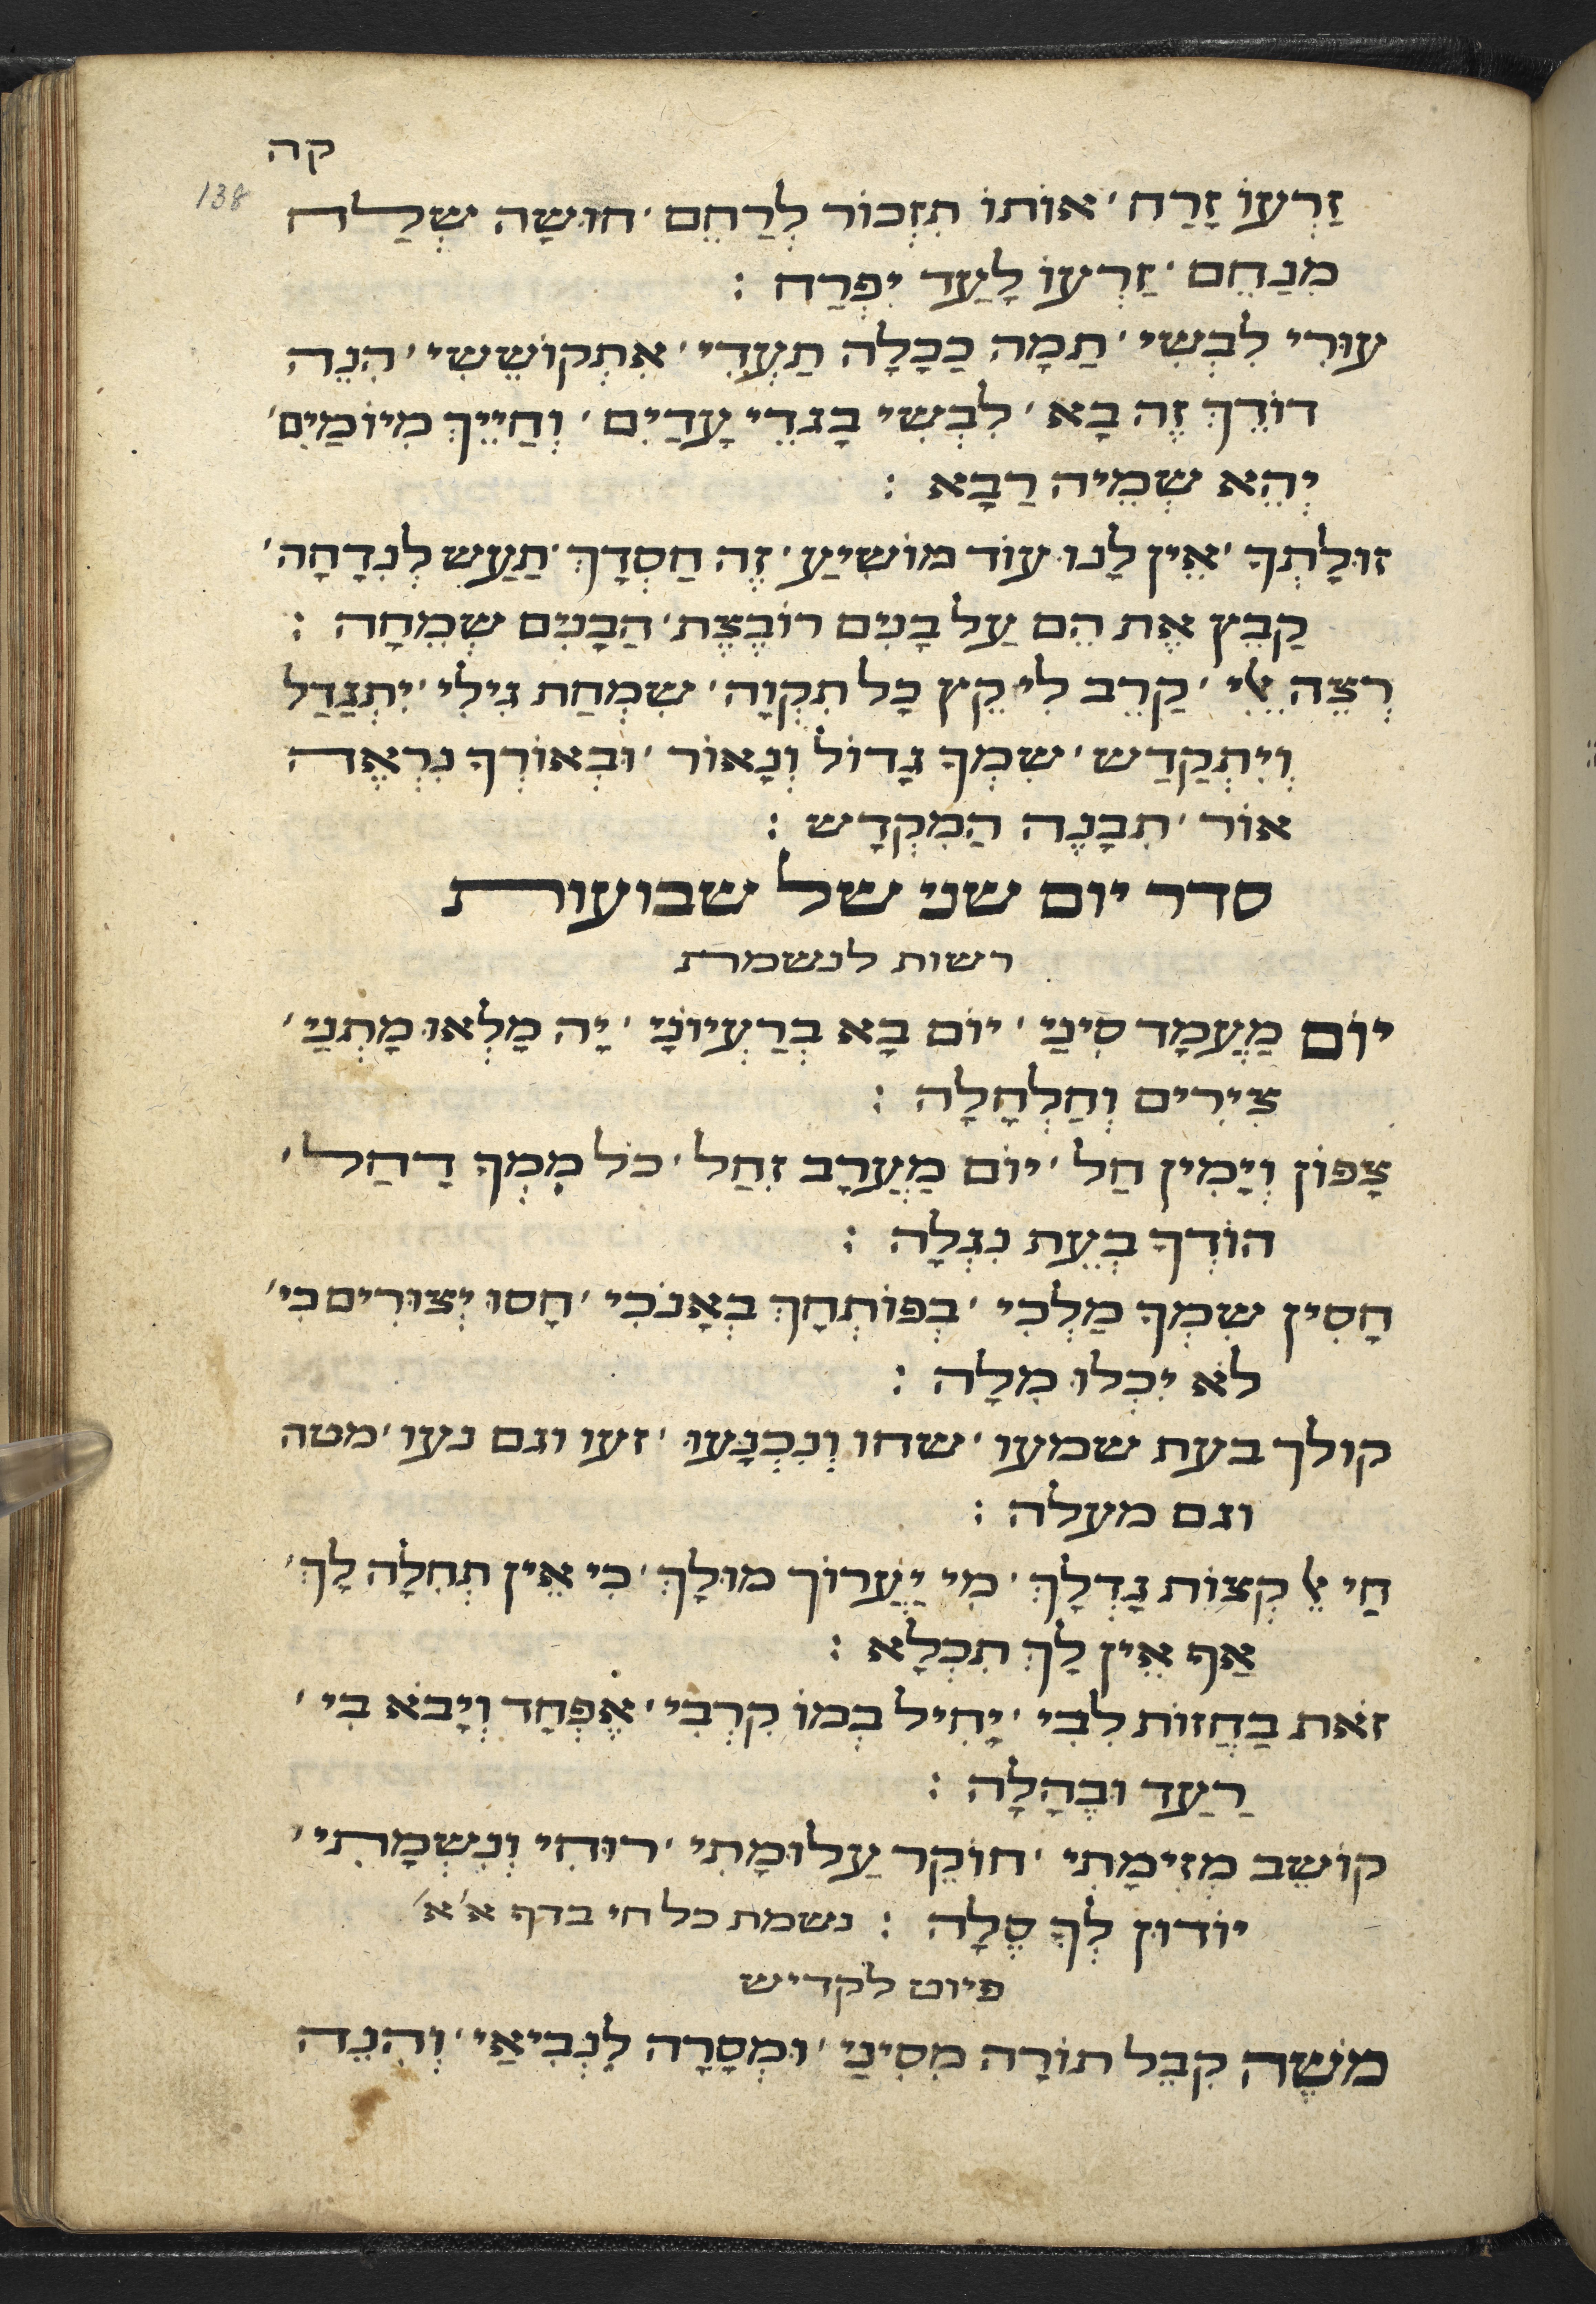 קה
138
זַרְעוֹ זָרַח ׳ אוֹתוֹ תִזְכּוֹר לְרַחֵם ׳ חוּשָׁה שְׁלַח
מְנַחֵם ׳ זַרְעוֹ לָעַד יִפְרַח :
עוּרִי לִבְשִׁי ׳ תַמָּה כַכַּלָּה תַעְדִּי ׳ אִתְקוֹשֵׁשִׁי ׳ הִנֵּה
דוֹדֵךְ זֶה בָּא ׳ לִבְשִׁי בָגדֵי עָדַיִם ׳ וְחַיֵּיךְ מִיּוֹמַיִם ׳
יְהֵא שְׁמֵיהּ רַבָּא :
זוּלָתְךָ ׳ אֵין לָנוּ עוֹד מוֹשִׁיעַ ׳ זֶה חַסְדָּךְ ׳ תַעַשׂ לְנִדָּחָה ׳
קַבֵּץ אֶת הֵם עַל בָּנִים רוֹבֶצֶת ׳ הַבָּנִים שְׂמֵחָה :
רְצֵה אֵלִי ׳ קַרֵב לִי קֵץ כָּל תִקְוָה ׳ שִׂמְחַת גִּילִי ׳ יִתְגַּדַּל
וְיִתְקַדַּשׁ ׳ שִׁמְךָ גָדוֹל וְנָאוֹר ׳ וּבְאוֹרְךָ נִרְאֶה
אוֹר ׳ תִבָּנֶה הַמִּקְדָּשׁ :
סדר יום שני של שבועות
רשות לנשמת
יוֹם מַעֲמָד סִינַי ׳ יוֹם בָּא בְרַעְיוֹנָי ׳ יָהּ מָלְאוּ מָתְנַי ׳
צִירִים וְחַלְחָלָה :
צָפוֹן וְיָמִין חַל ׳ יוֹם מַעֲרָב זָחַל ׳ כֹּל מִמְּךָ דָחַל ׳
הוֹדְךָ בְּעֵת נִגְלָה :
חָסִין שִׁמְךָ מַלְכִּי ׳ בְּפוֹתְחָךְ בְּאָנֹכִי ׳ חָסוּ יְצוּרִים כִּי ׳
לֹא יִכְלוּ מִלָּה :
קולך בעת שמעו ׳ שחו וְנִכְנָעוּ ׳ זעו וגם נעו ׳ מטה
וגם מעלה :
חַי אֵל קְצוֹת גָּדְלָךְ ׳ מִי יַעֲרוֹךְ מוּלָךְ ׳ כִּי אֵין תְּחִלָּה לָךְ ׳
אַף אֵין לָךְ תִּכְלָא :
זֹאת בַּחֲזוֹת לִבִּי ׳ יָחִיל כְּמוֹ קִרְבִּי ׳ אֶפְחַד וְיָבֹא בִי ׳
רַעַד וּבֶהָלָה :
קוֹשֵׁב מְזִימָתִי ׳ חוֹקֵר עַלוּמָתִי ׳ רוּחִי וְנִשְׁמָתִי ׳
יוֹדוּן לְךָ סֶלָה : נשמת כל חי בדף א׳א׳
פיוט לקדיש
מֹשֶׁה קִבֵּל תּוֹרָה מִסִּינַי ׳ וּמְסָרָהּ לִנְבִיאַי ׳ וְהִנֵּה